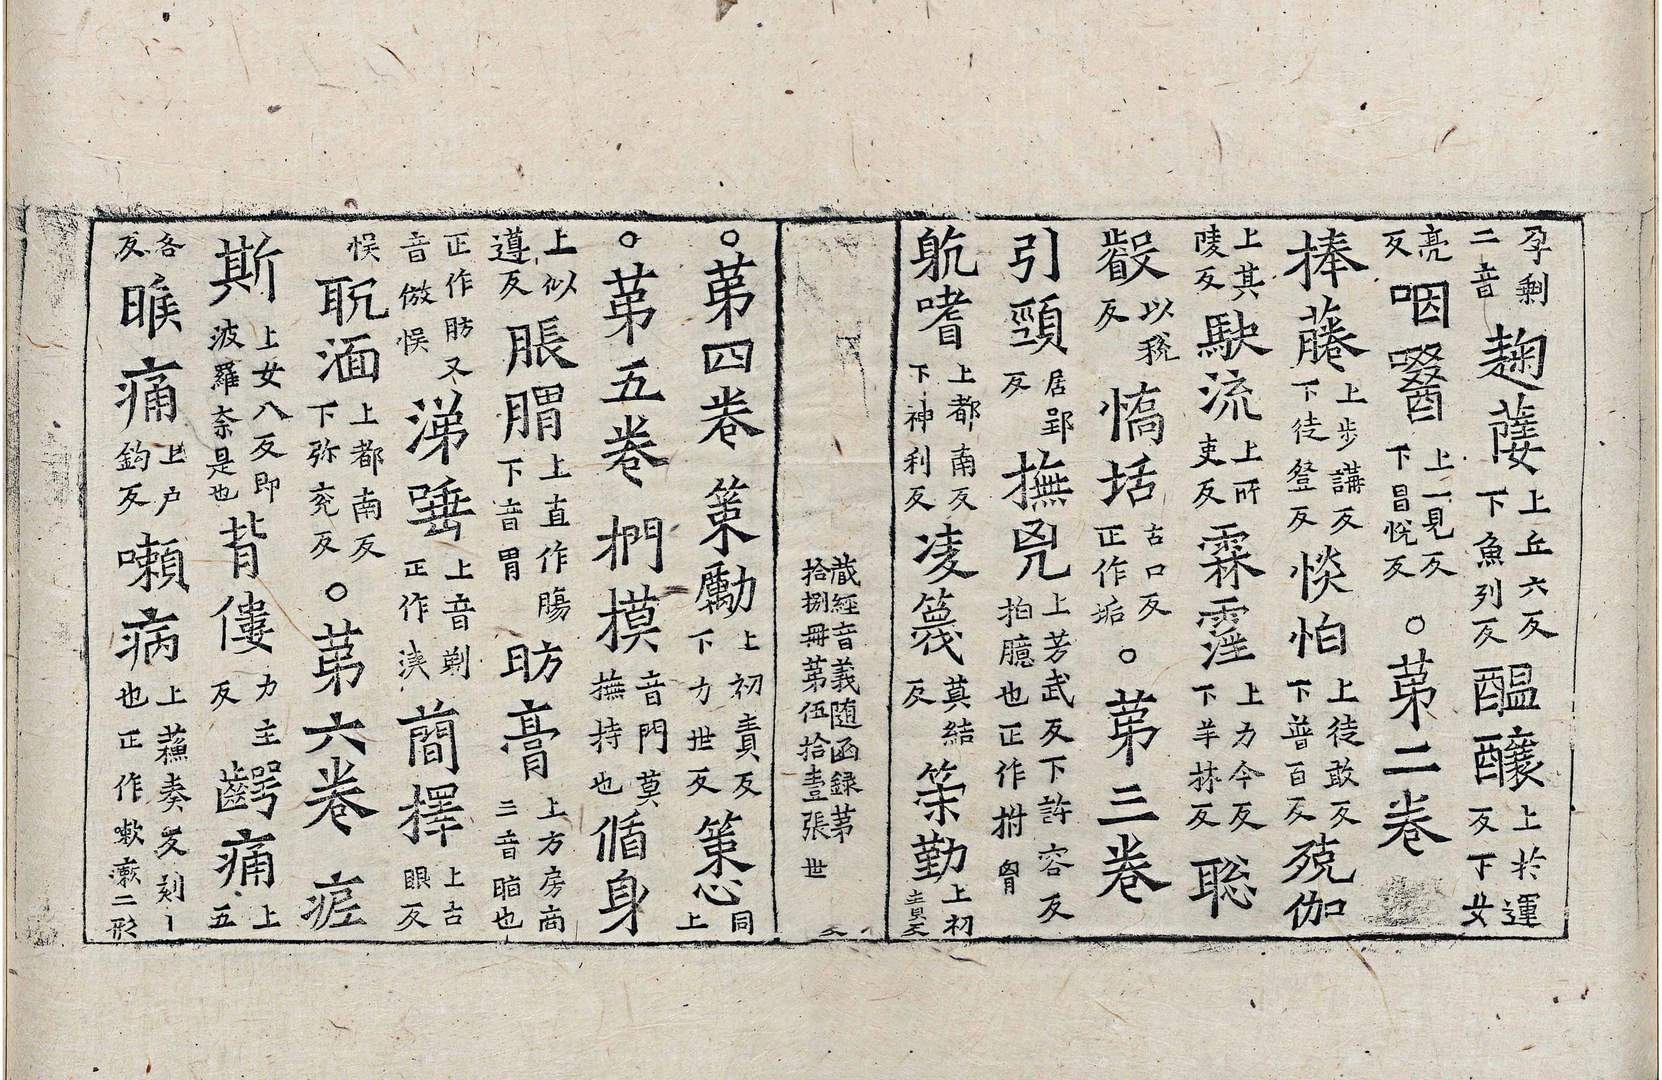 孕剩二音麹蘖上丘六反下魚列反醖釀上於運反下女
亮反咽啜上一見反下昌悅反○第二卷
捧藤上步講反下徒登反惔怕上徒敢反下普百反殑伽
上其陵反駛流上所吏反霖霪上力今反下羊林反聡
叡以稅反憍垢古口反正作垢○第三卷
引頸居郢反撫匈上芳武反下許容反拍臆也正作拊胷
躭嗜上都南反下神利反凌篾莫結反策勤上初責反
藏經音義随函録第拾捌冊第伍拾壹張 世
○第四卷 策勵上初責反下力世反策忢同上
○第五卷 捫摸音門莫撫持也循身
上似遵反脹胃上直作腸下音胃肪膏上方房二音脂也
正作肪又音倣悮涕唾上音剃正作洟蕳擇上古眼反
悮耽湎上都南反下弥兖反○第六卷 痆
斯上女八反即波羅奈是也背僂力主反齶痛上五
各反睺痛上户鈎反嗽病上蘓奏反欬也正作嗽瘶二形